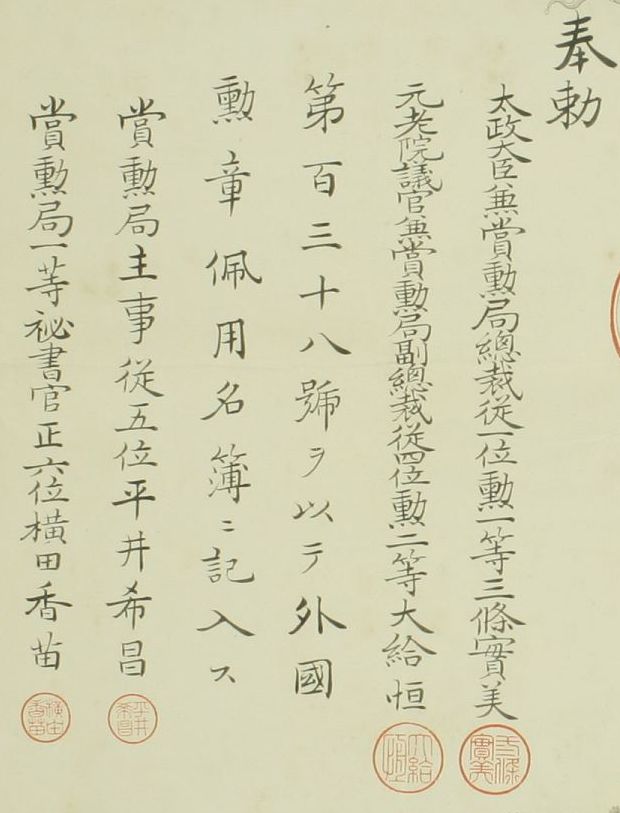 奉勅
太政大臣兼賞勲局總裁従一位勲一等三條實美
元老院議官兼賞勲局副總裁従四位勲二等大給恒
第百三十八號ヲ以テ外國
勲章佩用名簿ニ記入ス
賞勲局主事従五位平井希昌
賞勲局一等祕書官正六位横田香苗
三條實美
大給恒
平井希昌
横田香苗